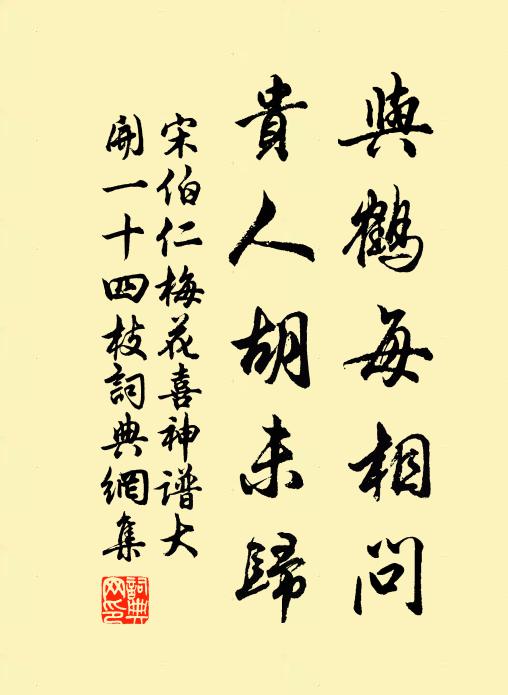 與鶴每相問
貴人胡未歸
宋伯仁梅花喜神谱大
開一十四枝詞典網集
詞典網印